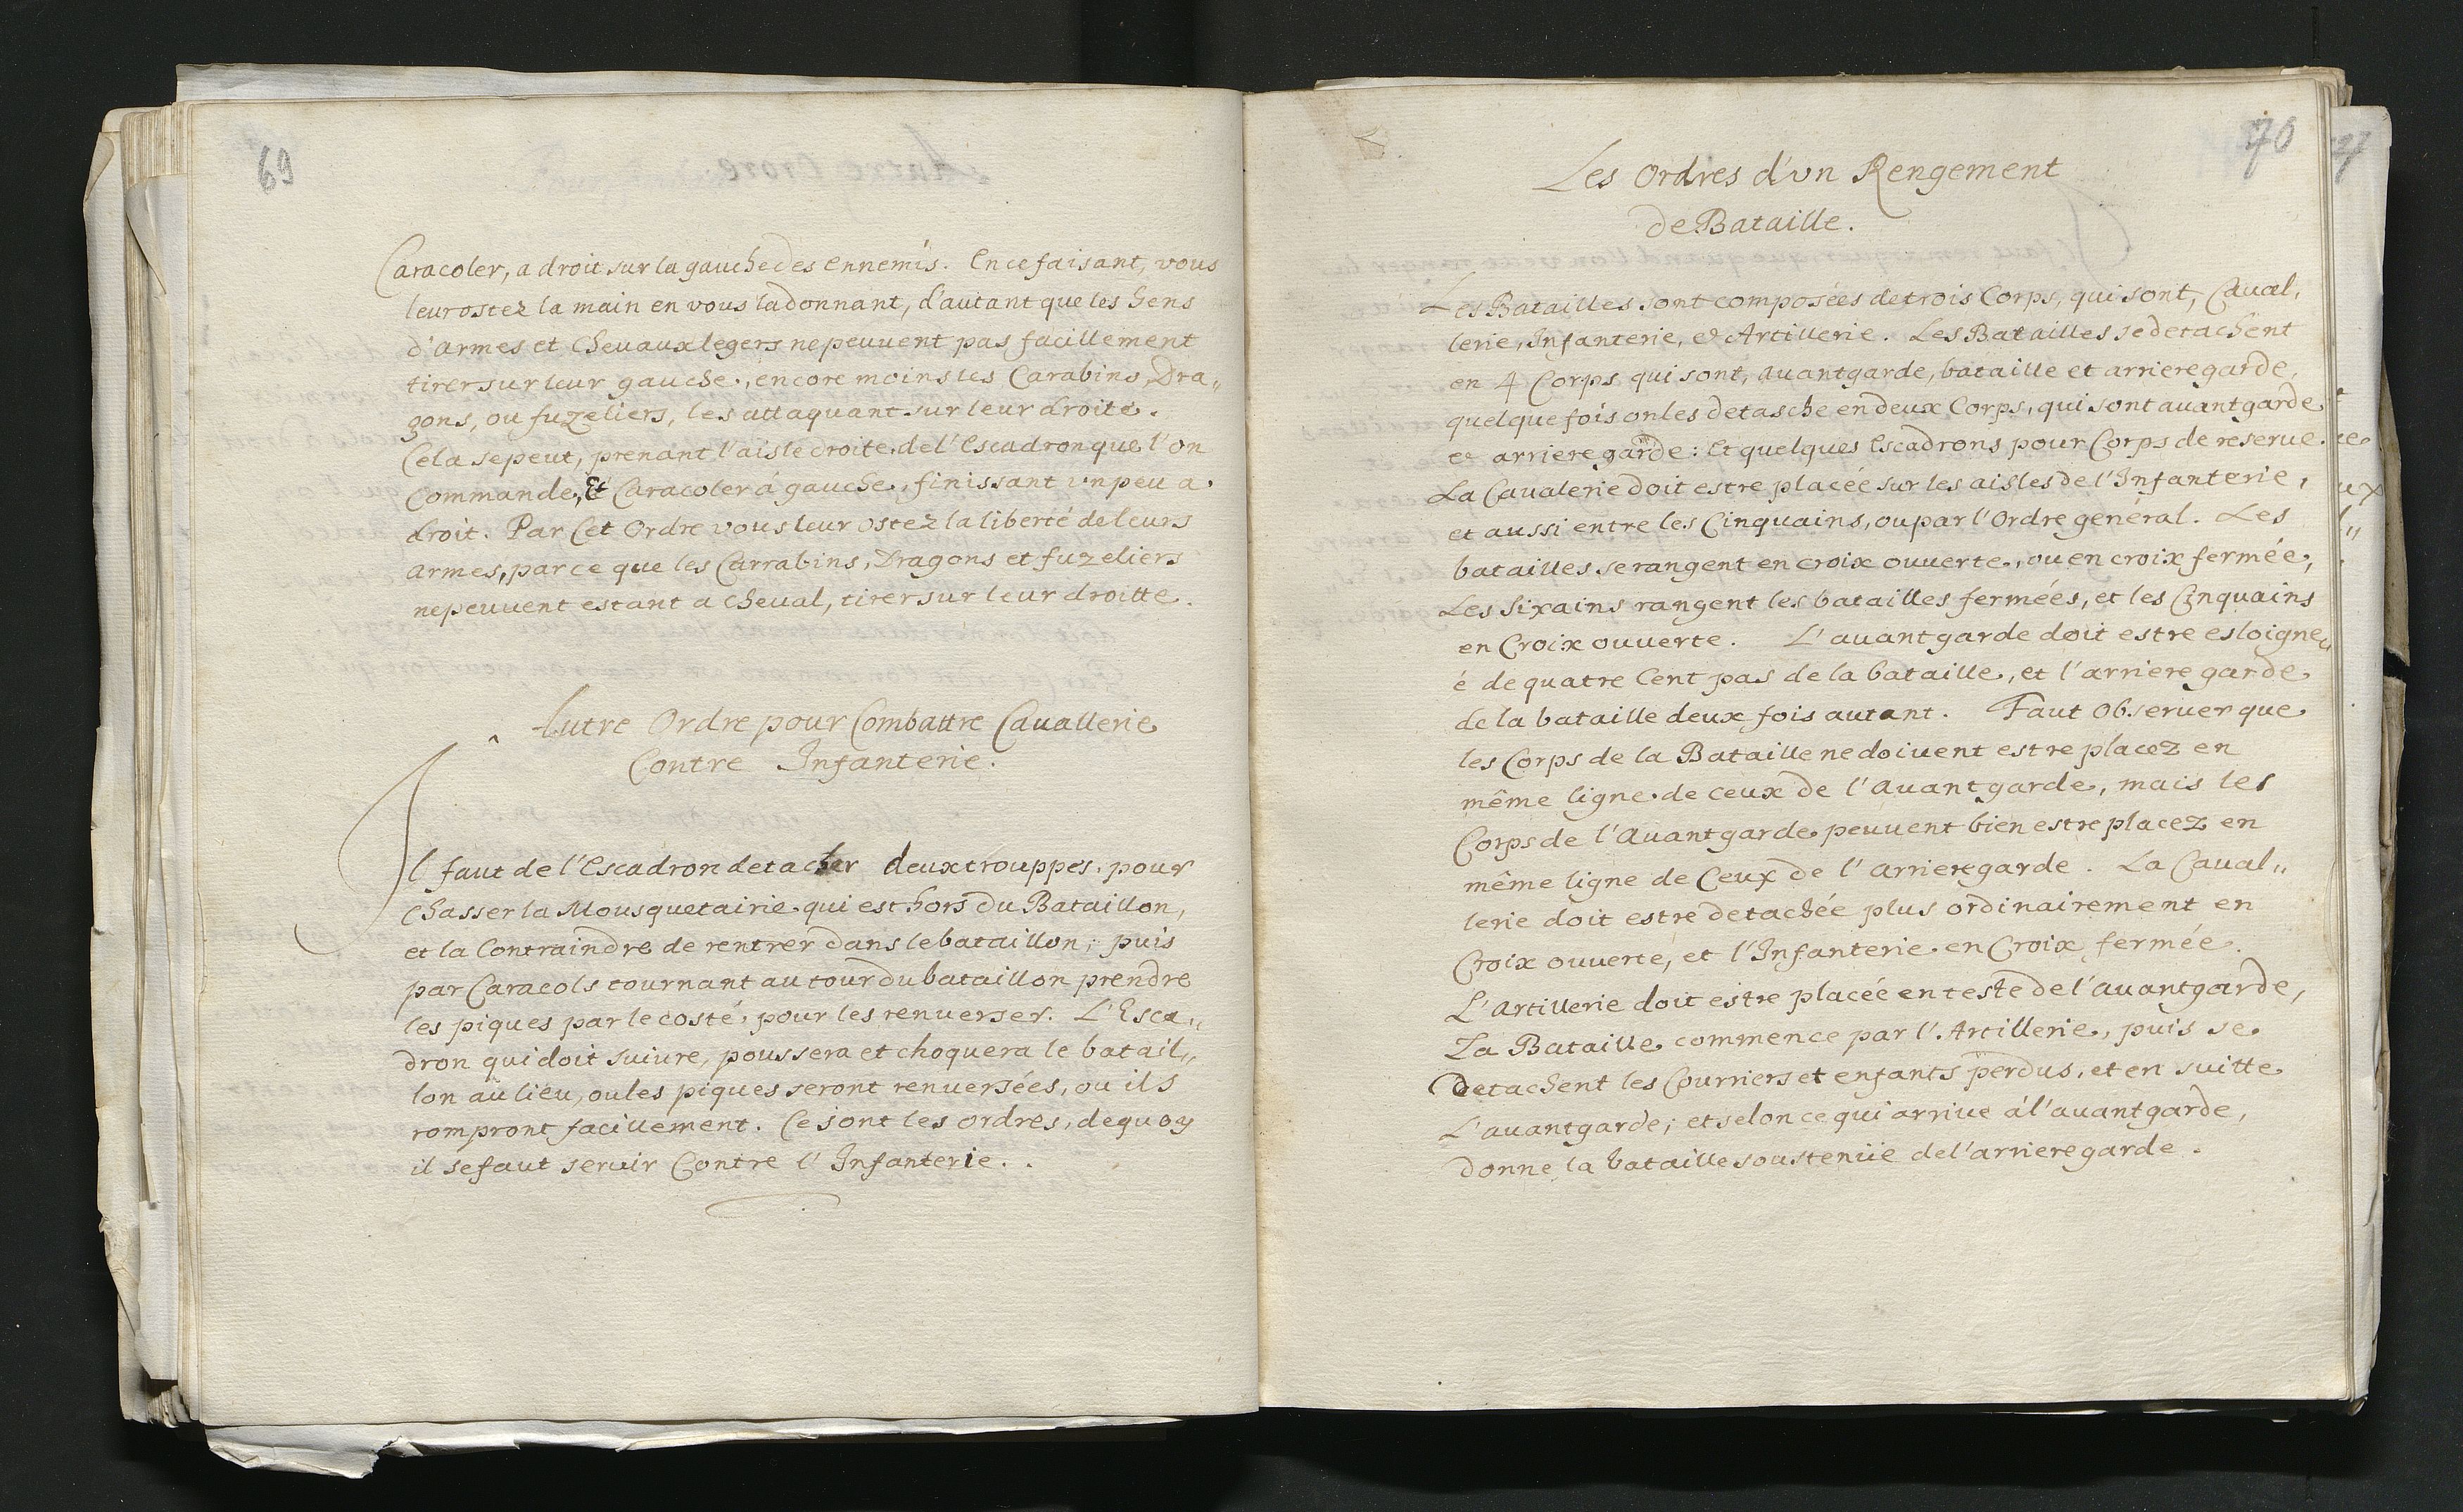 69
Caracoler, a droit sur la gauche des ennemis. En ce faisant, vous
leur ostez la main en vous la donnant, d'autant que les Gens
d'Armes et Chevaux legers ne peuvent pas facillement
tirer sur leur gauche, encore moins les Carabins, Dra„
gons, ou fuzeliers, les attaquant sur leur droite.
Cela se peut, prenant l'aisle droite de l'Escadron que l'on
Commande, Et Caracoler á gauche, finissant un peu a
droit. Par Cet Ordre vous leur ostez la liberté de leurs
armes, parce que les Carrabins, Dragons et fuzeliers
ne peuvent estant a Cheval, tirer sur leur droitte.
Autre Ordre pour Combattre Cavallerie
Contre Infanterie.
Il faut de l'Escadron detacher deux trouppes, pour
Chasser la Mousquetairie qui est hors du Bataillon,
et la Contraindre de rentrer dans le bataillon; puis
par Caracols tournant autour du bataillon prendre
les piques par le costé, pour les renverser. L'Esca„
dron qui doit suivre, poussera et choquera le batail„
lon au lieu, ou les piques seront renversées, ou ils
rompront facillement. Ce sont les ordres, de quoy
il se faut servir Contre l'Infanterie.
70
Les Ordres d'vn Rengement
de Bataille.
Les Batailles sont composées de trois Corps, qui sont, Caval,
lerie, Infanterie, et Artillerie. Les Batailles se detachent
en 4 Corps qui sont, avantgarde, bataille et arrieregarde,
quelque fois on les detasche en deux Corps, qui sont avantgarde
et arrieregarde: Et quelques Escadrons pour Corps de reserve.
La Cavalerie doit estre placée sur les aisles de l'Infanterie,
et aussi entre les Cinquains, ou par l'Ordre general. Les
batailles se rangent en croix ouverte, ou en croix fermée,
Les Sixains rangent les batailles fermées, et les Cinquains
en Croix ouverte. L'avantgarde doit estre esloigne„
é de quatre Cent pas de la bataille, et l'arriere garde
de la bataille deux fois autant. Faut Observer que
les Corps de la Bataille ne doivent estre placez en
même ligne de ceux de l'Avantgarde, mais les
Corps de l'Avantgarde peuvent bien estre placez en
même ligne de Ceux de l'arrieregarde. La Caval„
lerie doit estre detachée plus ordinairement en
Croix ouverte, et l'Infanterie en Croix fermée.
L'Artillerie doit estre placée en teste de l'avantgarde,
La Bataille commence par l'Artillerie, puis se
detachent les Courriers et enfants perdus, et en suitte
L'avantgarde; et selon ce qui arrive á l'avantgarde,
donne la bataille soustenüe de l'arrieregarde.